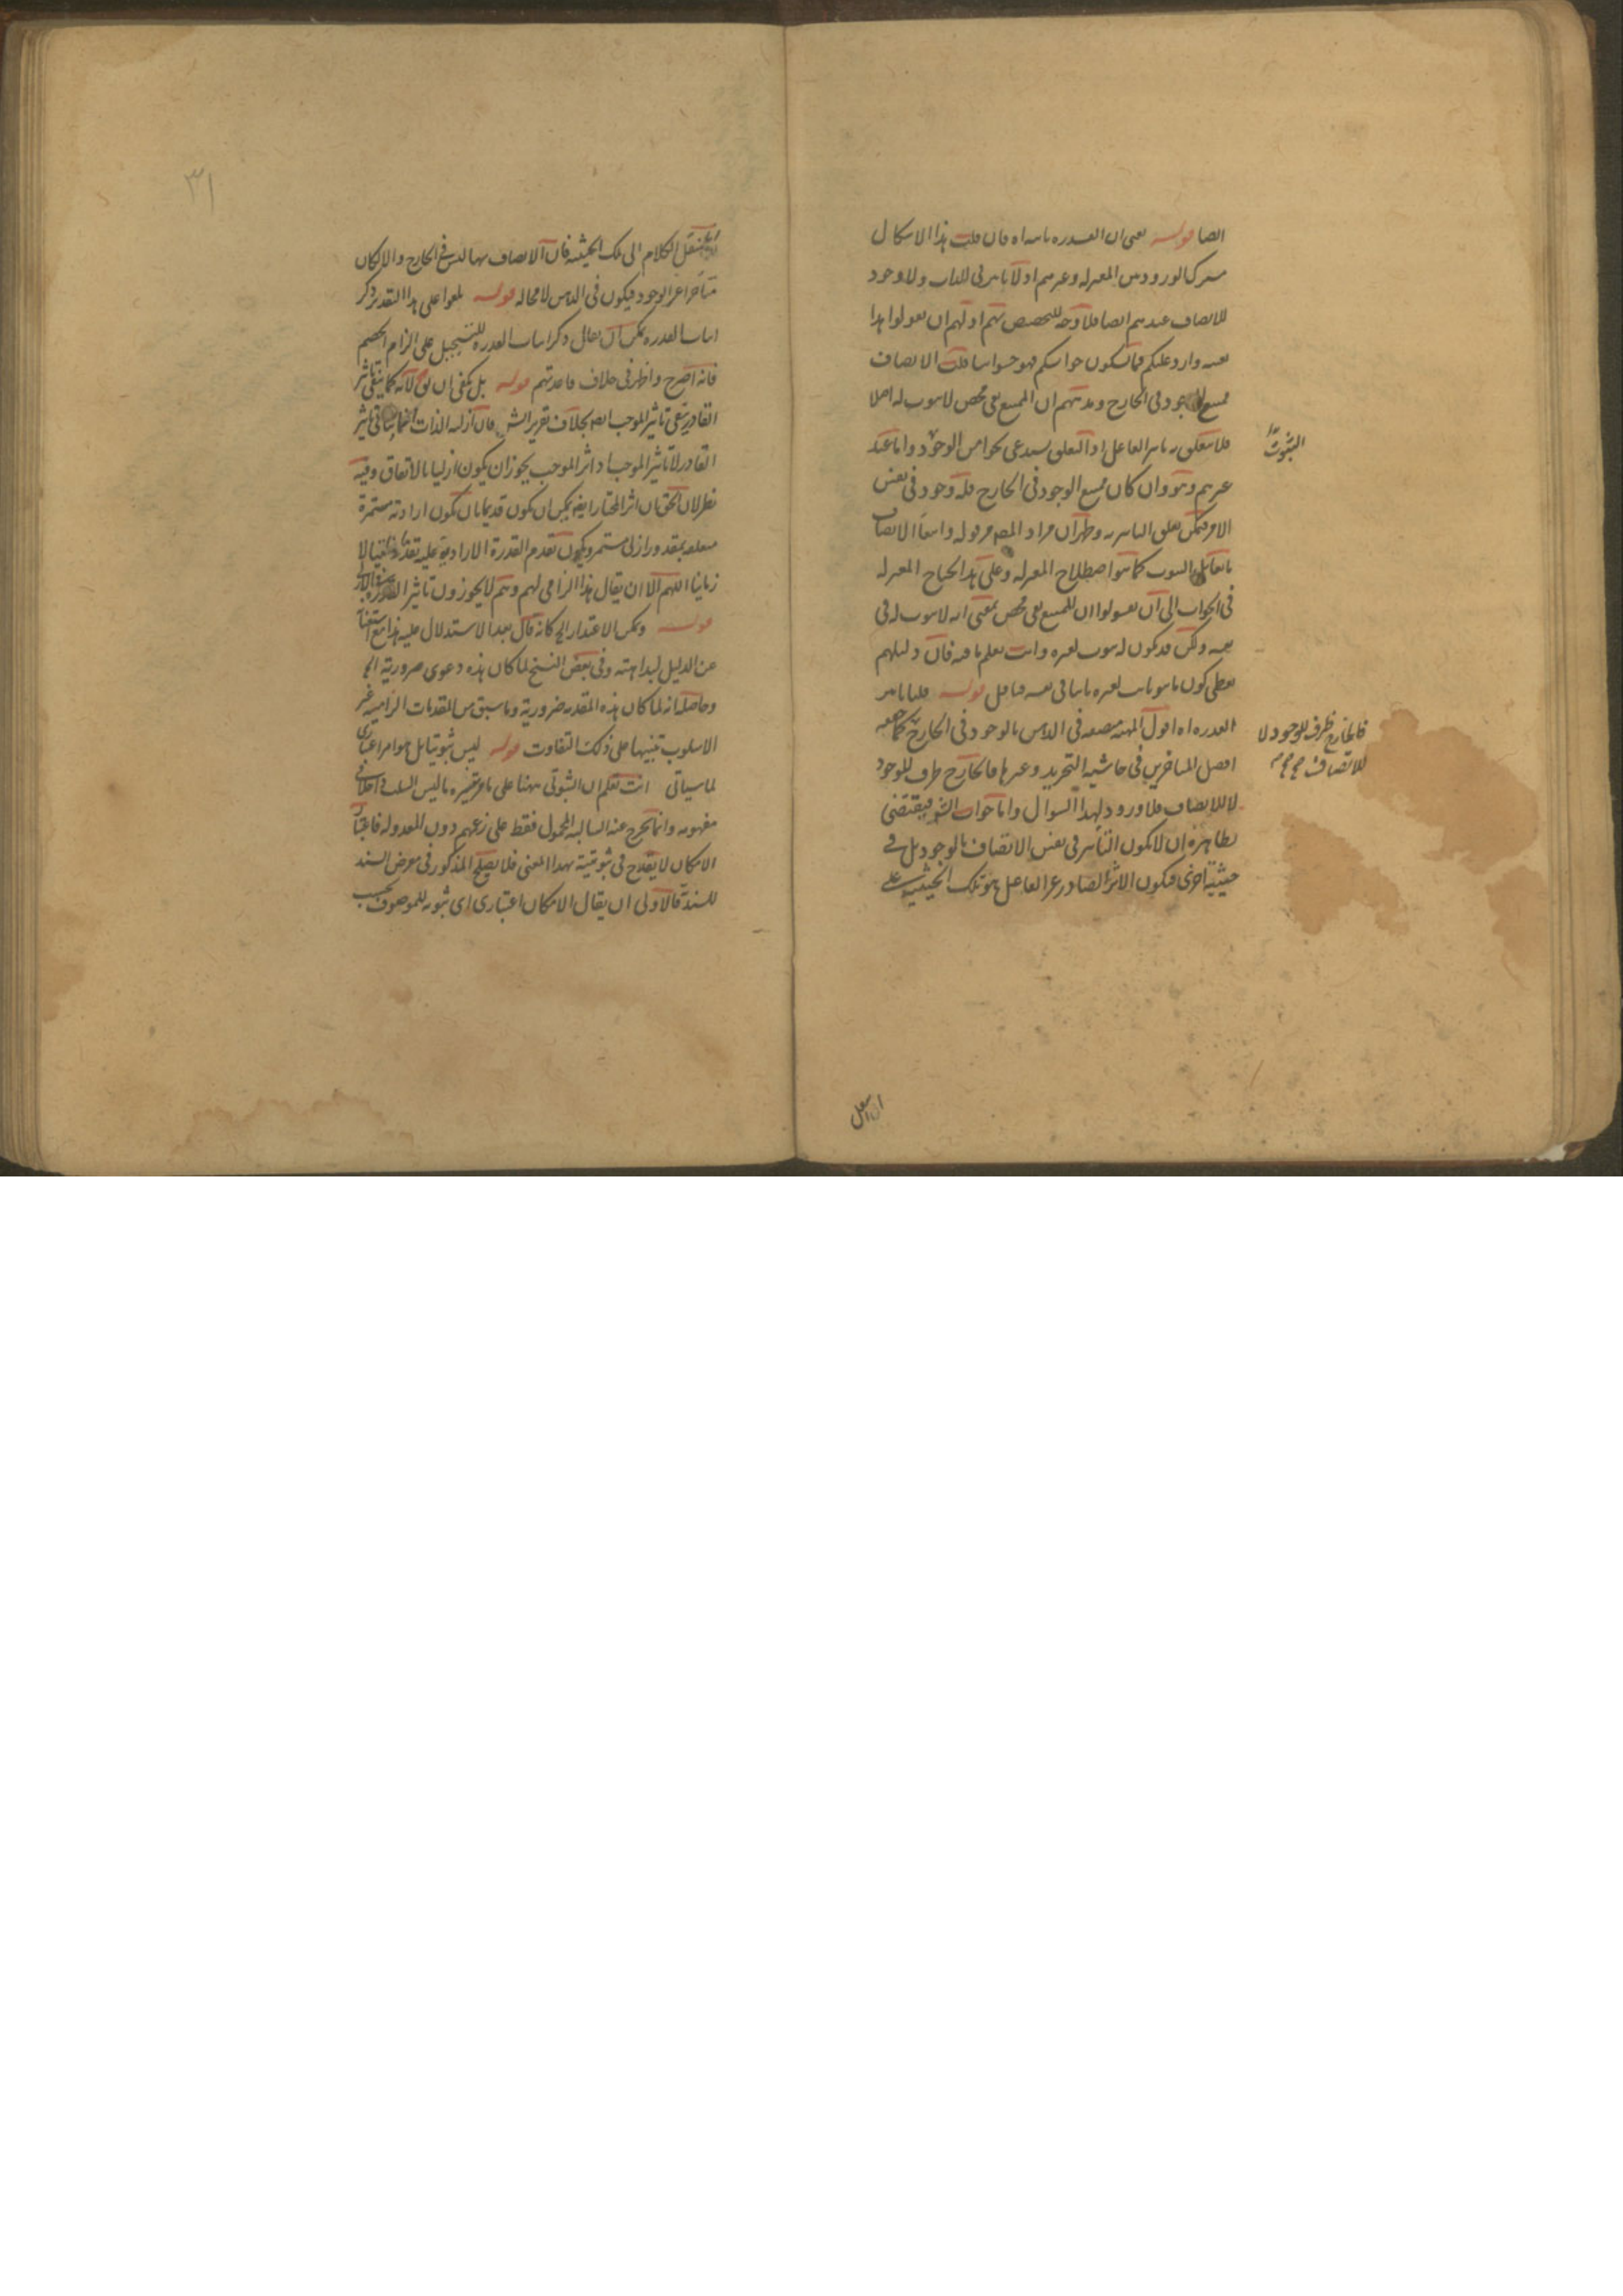 ايضا قوله يعنى ان القدرة تاثيراه فان قلت هذا الاشكال
مشترك الورود بين المعتزلة وغيرهم اذ لا تاثير فى الذات ولا وجود
للاتصاف عندهم ايضا فلا وجه للتخصيص بهم اذ لهم ان يقولوا هذا
بعينه وارد عليكم فما يكون جوابكم فهو جوابنا قلت الاتصاف
ممتنع الوجود فى الخارج ومذهبهم ان الممتنع نفى محض لا ثبوت له اصلا
فلا يتعلق به تاثير الفاعل اذ التعلق يستدعى نحوا من الوجود واما عند
غيرهم وهو وان كان ممتنع الوجود فى الخارج فله وجود فى نفس
الامر فيمكن تعلق التاثير به وظهر ان مراد المصـ من قوله وايضا الاتصاف
ما يقابل الثبوت كما هو اصطلاح المعتزلة وعلى هذا يحتاج المعتزلة
فى الجواب الى ان يقولوا ان الممتنع نفى محض بمعنى انه لا ثبوت له فى
نفسه ولكن قد يكون له ثبوت لغيره وانت تعلم ما فيه فان دليلهم
يعطى كون ما هو ثابت لغيره ثابتا فى نفسه فتأمل قوله قلنا تاثير
القدرة اه اقول المهية متصفة فى الذهن بالوجود فى الخارج كما حققه
افضل المتاخرين فى حاشية التجريد وغيرها فالخارج ظرف للوجود
لا للاتصاف فلا ورود لهذا السوال واما جواب الشـ فيقتضى
بظاهره ان لا يكون التاثير فى نفس الاتصاف بالوجود بل فى
حيثية اخرى فيكون الاثر الصادر عن الفاعل هو تلك الحيثية على
الثبوت
فالخارج ظرف للوجود لا
للاتصاف
٣١
ننقل الكلام الى تلك الحيثية فان الاتصاف بها ليس فى الخارج والا لكان
متأخرا عن الوجود فيكون فى الذهن لا محالة قوله بلغوا على هذا التقدير ذكر
اثبات القدرة يمكن ان يقال ذكر اثبات القدرة للتسجيل على الزام الخصم
فانه اصرح واظهر فى خلاف قاعدتهم قوله بل يكفى ان لانه كما ينفى تاثير
القادر ينفى تاثير الموجب ايضا بخلاف تقرير الشـ فان ازلية الذات انما ينافى تاثير
القادر لا تاثير الموجب اذ اثر الموجب يجوز ان يكون ازليا بالاتفاق وفيه
نظر لان الحق ان اثر المختار ايضا يمكن ان يكون قديما بان تكون ارادته مستمرة
متعلقة بمقدور ازلى مستمر ويكون تقدم القدرة الارادية عليه تقدما ذاتيا لا
زمانيا اللهم الا ان يقال هذا الزامى لهم وهم لا يجوزون تاثير
قوله ويمكن الاعتذار الخ كانه قال بعد الاستدلال عليه هذا مع استغنائه
عن الدليل لبداهته وفى بعض النسخ لما كان هذه دعوى ضرورية الخ
وحاصله انه لما كان هذه المقدمة ضرورية وما سبق من المقدمات الزامية غير
الاسلوب تنبيها على ذلك التفاوت قوله ليس ثبوتيا بل هو امر اعتبارى
لما سيأتى انت تعلم ان الثبوتى ههنا على ما مر تفسيره ما ليس السلب داخلا فى
مفهومه وانما يخرج عنه السالبة المحمول فقط على زعمهم دون المعدولة فاعتبارية
الامكان لا يقدح فى ثبوتيته بهذا المعنى فلا يصلح المذكور فى معرض السند
للسندية فالاولى ان يقال الامكان اعتبارى اى ثبوته للموصوف بحسب